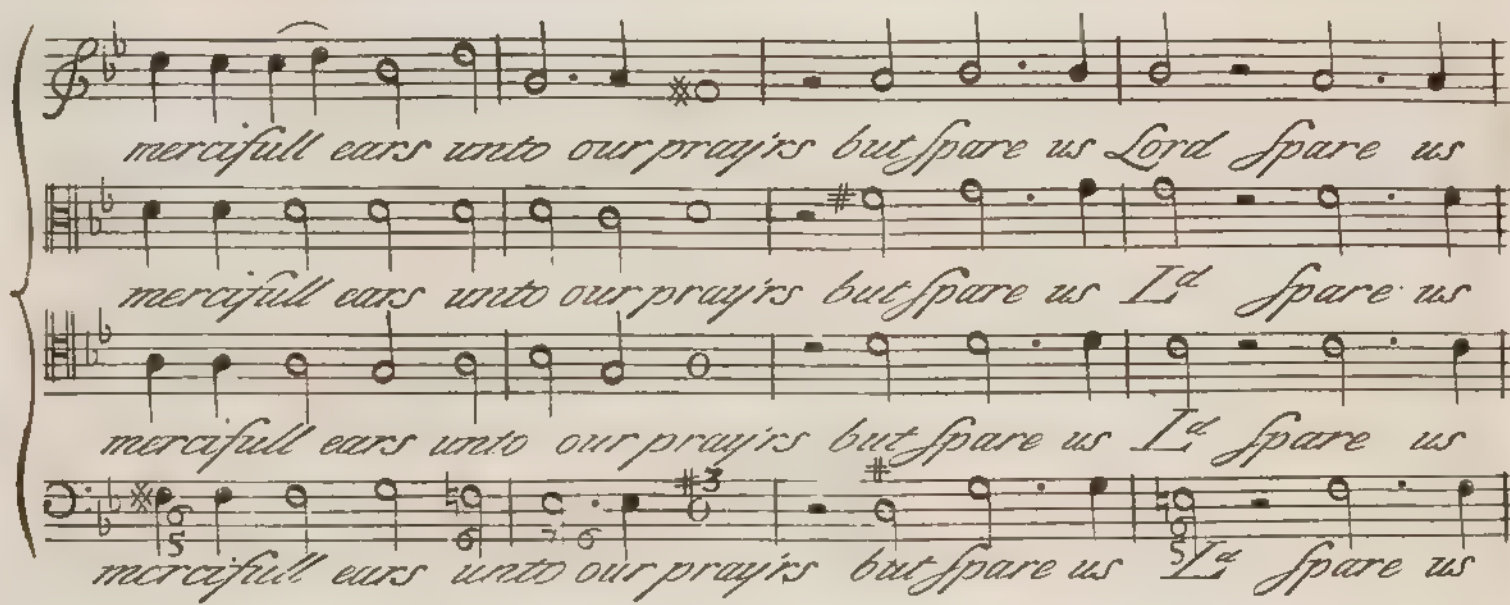 mercifull ears unto our pray'rs but spare us Lord spare us
mercifull ears unto our pray'rs but spare us Ld spare us
mercifull ears unto our pray'rs but spare us Ld spare us
#3
#
6
5
6
7
6
6
5
mercifull ears unto our pray'rs but spare us Ld spare us